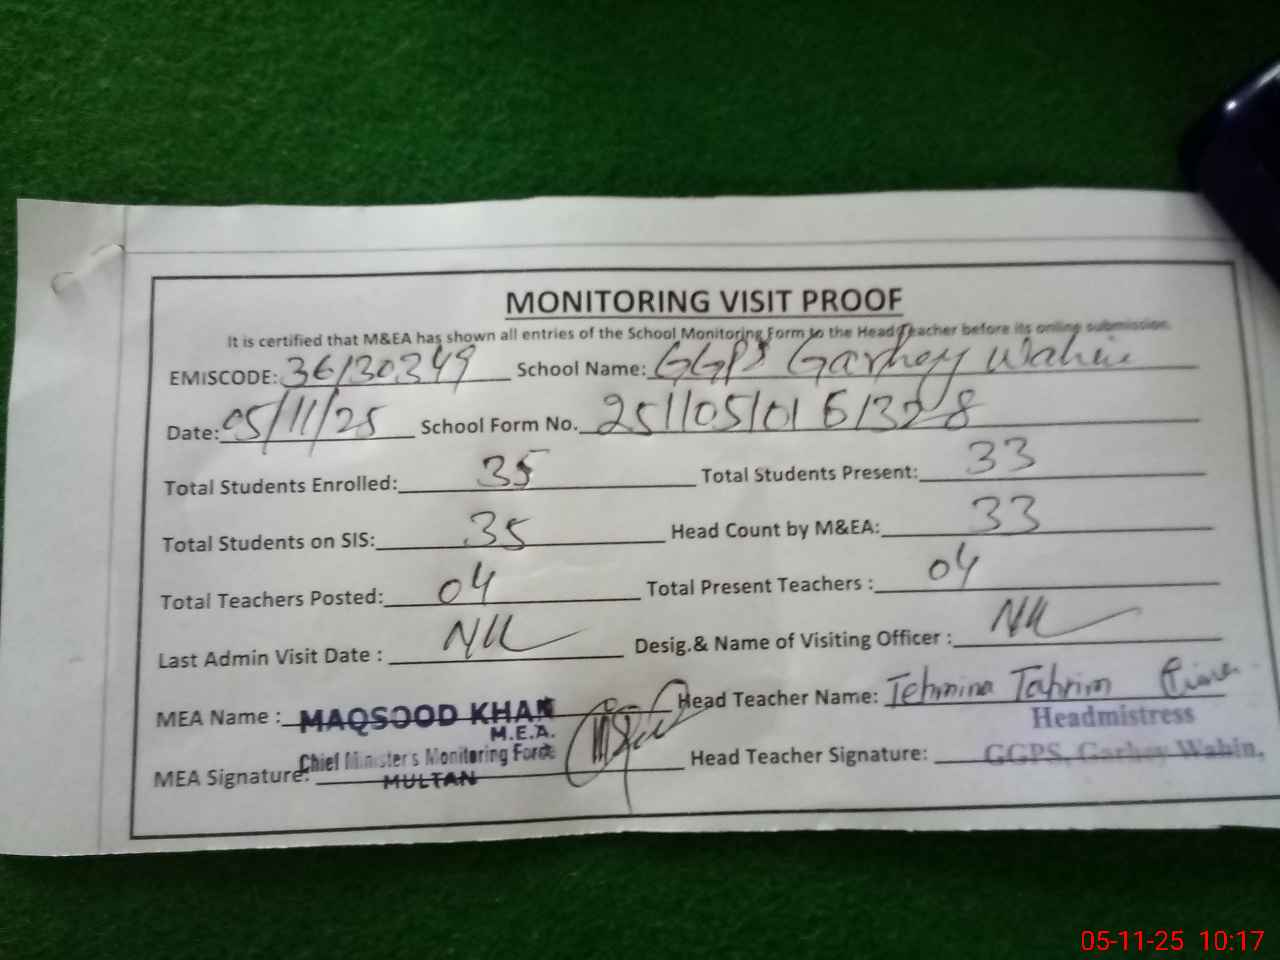 MONITORING VISIT PROOF
It is certified that M&EA has shown all entries of the School Monitoring Form to the Head Teacher before its online submission.
EMISCODE: 36130349 School Name: GGPS Garhey Wahin
Date: 05/11/25 School Form No. 2511050161328
Total Students Enrolled: 35 Total Students Present: 33
Total Students on SIS: 35 Head Count by M&EA: 33
Total Teachers Posted: 04 Total Present Teachers : 04
Last Admin Visit Date : Nil Desig.& Name of Visiting Officer : Nil
MEA Name : MAQSOOD KHAN Head Teacher Name: Tehmina Tahrim
M.E.A. Headmistress
MEA Signature: Chief Minister's Monitoring Force Head Teacher Signature: GGPS, Garhey Wahin,
MULTAN
05-11-25 10:17